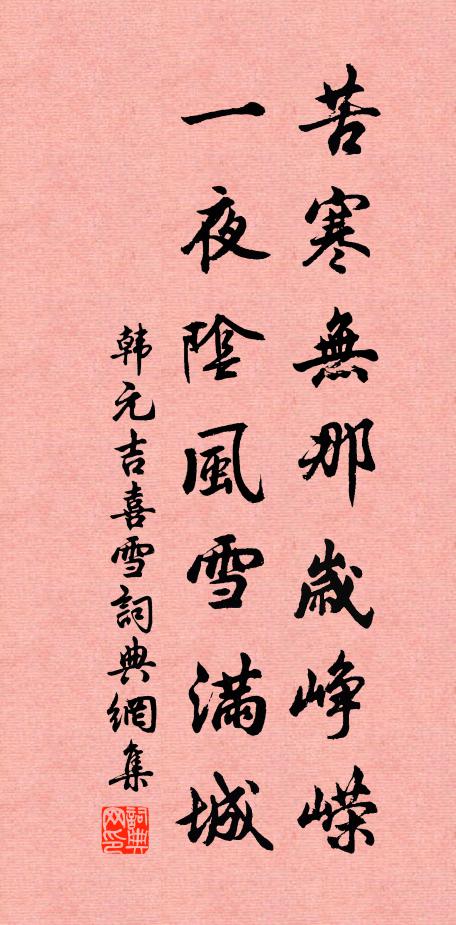 苦寒無那歲峥嶸
一夜陰風雪滿城
韩元吉喜雪詞典網集
詞典网印